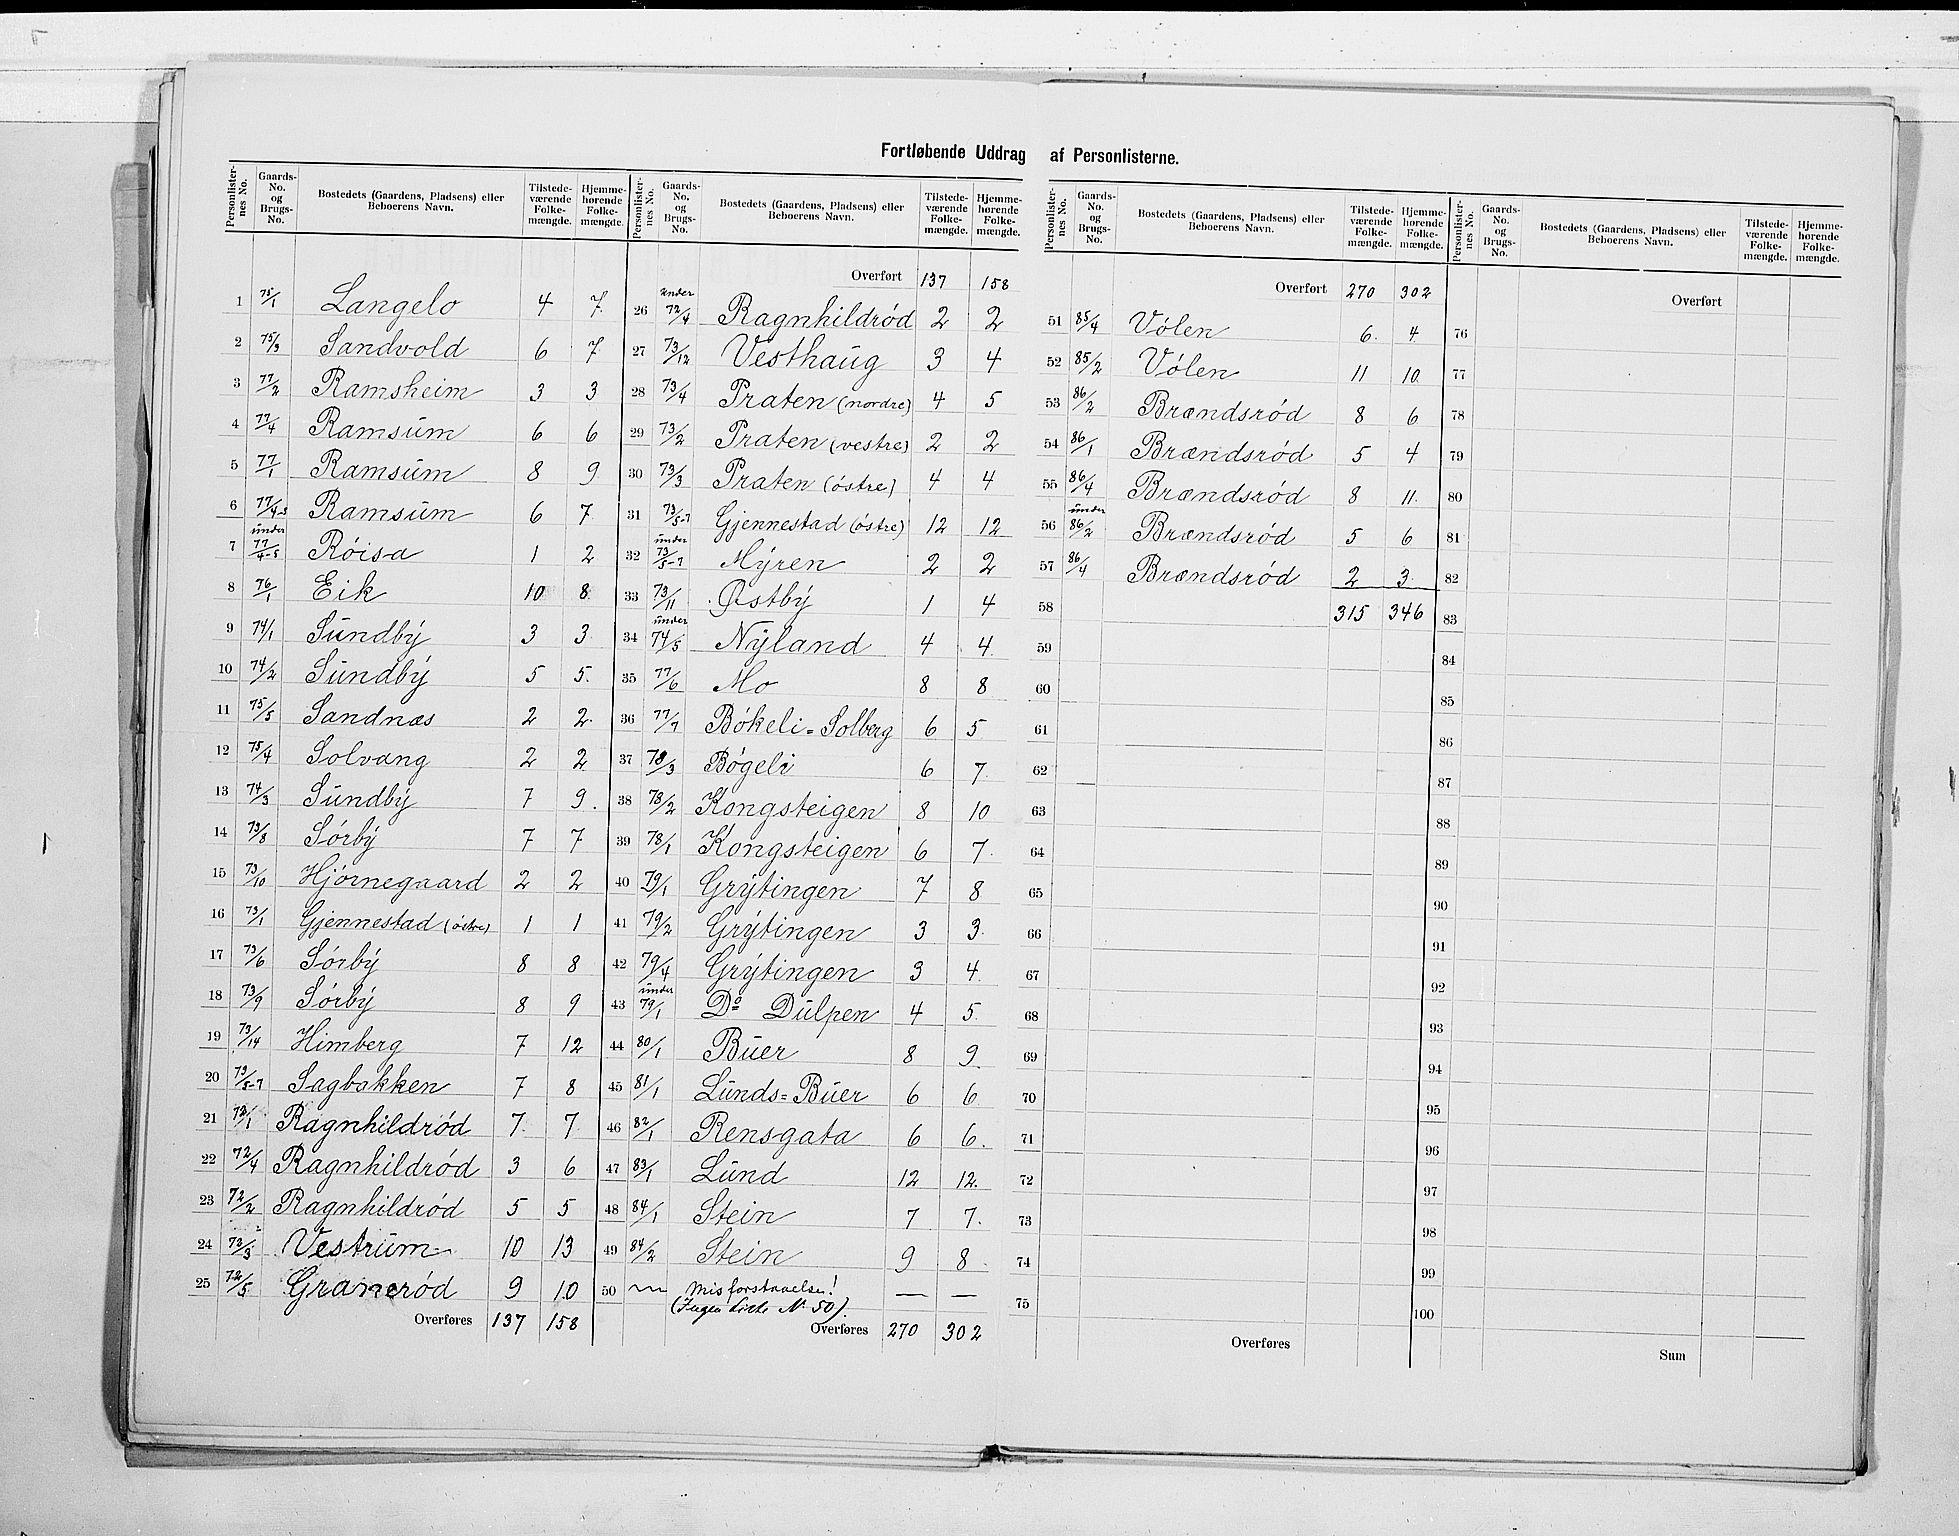 Fortløbende Uddrag af Personlisterne.
Personlister-nes No. Gaards-No. og Brugs-No. Bostedets (Gaardens, Pladsens) eller Beboerens Navn. Tilstede-værende Folke-mængde. Hjemme-hørende Folke-mængde.
1 75/1 Langelo 4 7
2 75/3 Sandvold 6 7
3 77/2 Ramsheim 3 3
4 77/4 Ramsum 6 6
5 77/1 Ramsum 8 9
6 77/4-3 Ramsum 6 7
7 under 77/4-5 Róisa 1 2
8 76/1 Eik 10 8
9 74/1 Sundby 3 3
10 74/2 Sundby 5 5
11 75/5 Sandnæs 2 2
12 75/4 Solvang 2 2
13 74/3 Sundby 7 9
14 73/8 Sórby 7 7
15 73/10 Hjórnegaard 2 2
16 73/1 Gjennestad (óstre) 1 1
17 73/6 Sórby 8 8
18 73/9 Sórby 8 9
19 73/14 Himberg 7 12
20 73/5-7 Sagbakken 7 8
21 72/1 Ragnhildród 7 7
22 72/4 Ragnhildród 3 6
23 72/2 Ragnhildród 5 5
24 72/3 Vestrum 10 13
25 72/5 Graneród 9 10
Overføres 137 158
Personlister-nes No. Gaards-No. og Brugs-No. Bostedets (Gaardens, Pladsens) eller Beboerens Navn. Tilstede-værende Folke-mængde. Hjemme-hørende Folke-mængde.
Overført 137 158
26 under 72/4 Ragnhildród 2 2
27 73/12 Vesthaug 3 4
28 73/4 Praten (nordre) 4 5
29 73/2 Praten (vestre) 2 2
30 73/3 Praten (óstre) 4 4
31 73/5-7 Gjennestad (óstre) 12 12
32 under 73/5-7 Myren 2 2
33 73/11 Østby 1 4
34 under 74/5 Nyland 4 4
35 77/6 Mo 8 8
36 77/7 Bókeli=Solberg 6 5
37 78/3 Bógeli 6 7
38 78/2 Kongsteigen 8 10
39 78/1 Kongsteigen 6 7
40 79/1 Grytingen 7 8
41 79/2 Grytingen 3 3
42 79/4 Grytingen 3 4
43 under 79/1 Do Dulpen 4 5
44 80/1 Buer 8 9
45 81/1 Lunds=Buer 6 6
46 82/1 Rensgata 6 6
47 83/1 Lund 12 12
48 84/1 Stein 7 7
49 84/2 Stein 9 8
50 Misforstaaelse! — —
(Ingen Liste No 50).
Overføres 270 302
Personlister-nes No. Gaards-No. og Brugs-No. Bostedets (Gaardens, Pladsens) eller Beboerens Navn. Tilstede-værende Folke-mængde. Hjemme-hørende Folke-mængde.
Overført 270 302
51 85/4 Vólen 6 4
52 85/2 Vólen 11 10
53 86/2 Brændsród 8 6
54 86/1 Brændsród 5 4
55 86/4 Brændsród 8 11
56 under 86/2 Brændsród 5 6
57 86/4 Brændsród 2 3
58 315 346
59
60
61
62
63
64
65
66
67
68
69
70
71
72
73
74
75
Overføres
Personlister-nes No. Gaards-No. og Brugs-No. Bostedets (Gaardens, Pladsens) eller Beboerens Navn. Tilstede-værende Folke-mængde. Hjemme-hørende Folke-mængde.
Overført
76
77
78
79
80
81
82
83
84
85
86
87
88
89
90
91
92
93
94
95
96
97
98
99
100
Sum